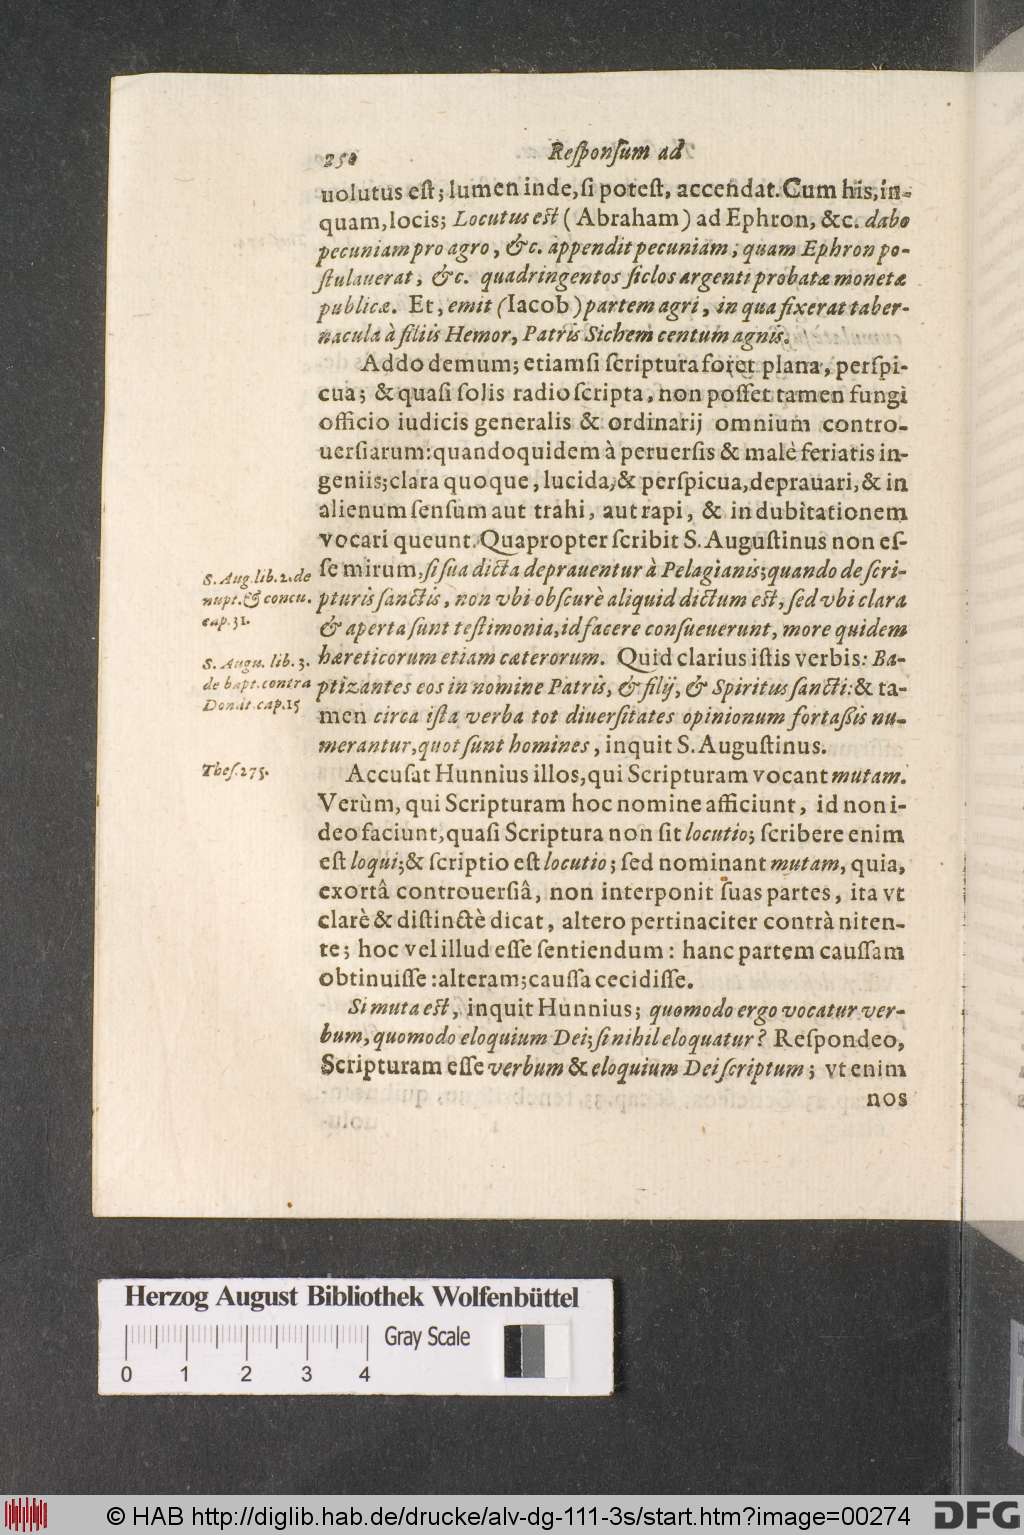 250 Reſponſum ad
uolutus eſt; lumen inde, ſi poteſt, accendat. Cum his, in-
quam, locis; Locutus eſt (Abraham) ad Ephron, &c. dabo
pecuniam pro agro, &c. appendit pecuniam; quam Ephron po-
ſtulauerat, &c. quadringentos ſiclos argenti probatæ monetæ
publicæ. Et, emit (Iacob) partem agri, in qua fixerat taber-
nacula à filiis Hemor, Patris Sichem centum agnis.
Addo demum; etiamſi ſcriptura foret plana, perſpi-
cua; & quaſi ſolis radio ſcripta, non poſſet tamen fungi
officio iudicis generalis & ordinarij omnium contro-
uerſiarum: quandoquidem à peruerſis & malè feriatis in-
geniis; clara quoque, lucida, & perſpicua, deprauari, & in
alienum ſenſum aut trahi, aut rapi, & in dubitationem
vocari queunt. Quapropter ſcribit S. Auguſtinus non eſ-
ſe mirum, ſi ſua dicta deprauentur à Pelagianis; quando de ſcri-
pturis ſanctis, non vbi obſcurè aliquid dictum eſt, ſed vbi clara
& aperta ſunt teſtimonia, id facere conſueuerunt, more quidem
hæreticorum etiam cæterorum. Quid clarius iſtis verbis: Ba-
ptizantes eos in nomine Patris, & filij, & Spiritus ſancti: & ta-
men circa iſta verba tot diuerſitates opinionum fortaſsis nu-
merantur, quot ſunt homines, inquit S. Auguſtinus.
S. Aug. lib. 2. de
nupt. & concu.
cap. 31.
S. Augu. lib. 3.
de bapt. contra
Donat. cap. 15
Theſ. 275.
Accuſat Hunnius illos, qui Scripturam vocant mutam.
Verùm, qui Scripturam hoc nomine afficiunt, id non i-
deo faciunt, quaſi Scriptura non ſit locutio; ſcribere enim
eſt loqui; & ſcriptio eſt locutio; ſed nominant mutam, quia,
exortâ controuerſiâ, non interponit ſuas partes, ita vt
clarè & diſtinctè dicat, altero pertinaciter contrà niten-
te; hoc vel illud eſſe ſentiendum: hanc partem cauſſam
obtinuiſſe: alteram; cauſſa cecidiſſe.
Si muta eſt, inquit Hunnius; quomodo ergo vocatur ver-
bum, quomodo eloquium Dei; ſi nihil eloquatur? Reſpondeo,
Scripturam eſſe verbum & eloquium Dei ſcriptum; vt enim
nos
Herzog August Bibliothek Wolfenbüttel
Gray Scale
0 1 2 3 4
© HAB http://diglib.hab.de/drucke/alv-dg-111-3s/start.htm?image=00274
DFG